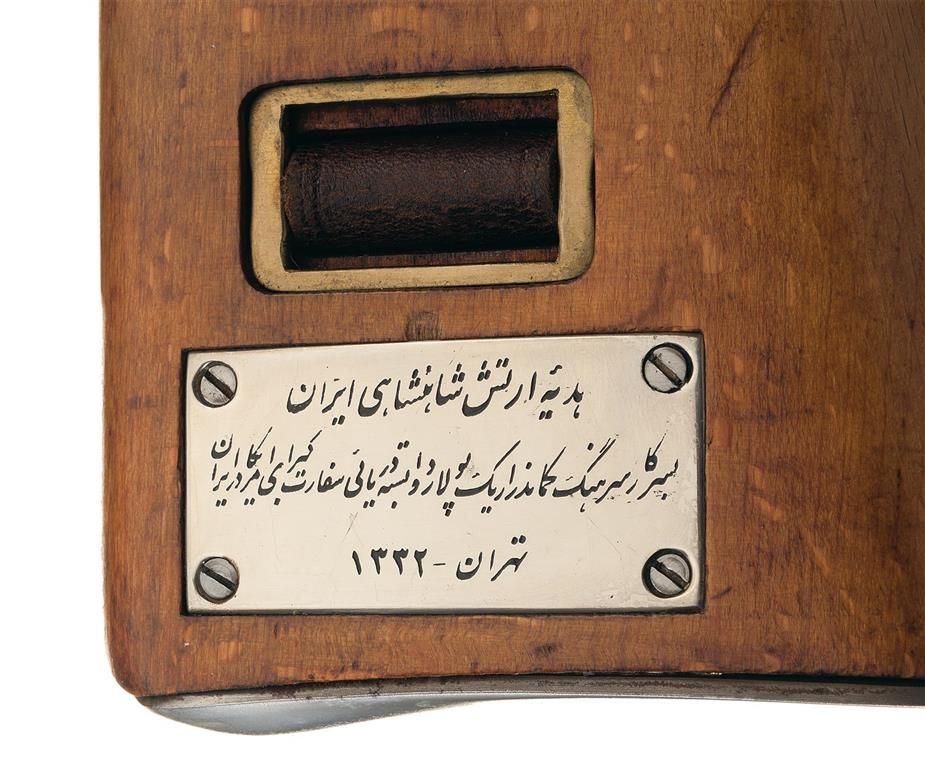 هدیهٔ ارتش شاهنشاهی ایران
بسرکار سرهنگ کماندر اریک پولارد وابسته دریائی سفارت کبرای امریکا در ایران
تهران - ۱۳۳۲